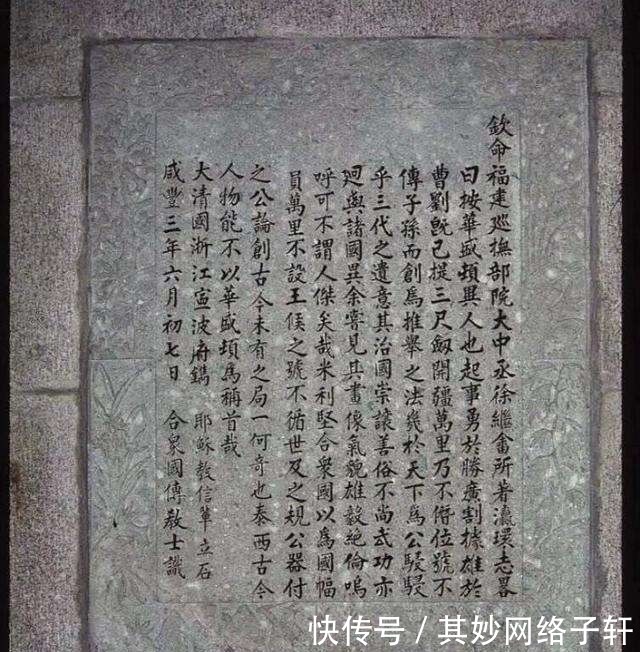 欽命福建巡撫部院大中丞徐繼畬所著瀛環志畧
曰按華盛頓異人也起事勇於勝廣割據雄於
曹劉旣已提三尺劔開疆萬里乃不僭位號不
傳子孫而創爲推舉之法幾於天下爲公駸駸
乎三代之遺意其治國崇讓善俗不尚武功亦
迥與諸國異余嘗見其畫像氣貌雄毅絕倫嗚
呼可不謂人傑矣哉米利堅合衆國以爲國幅
員萬里不設王侯之號不循世及之規公器付
之公論創古今未有之局一何奇也泰西古今
人物能不以華盛頓爲稱首哉
大清國浙江寧波府鐫 耶穌教信輩立石
咸豐三年六月初七日 合衆國傳教士識
快传号 / 其妙网络子轩